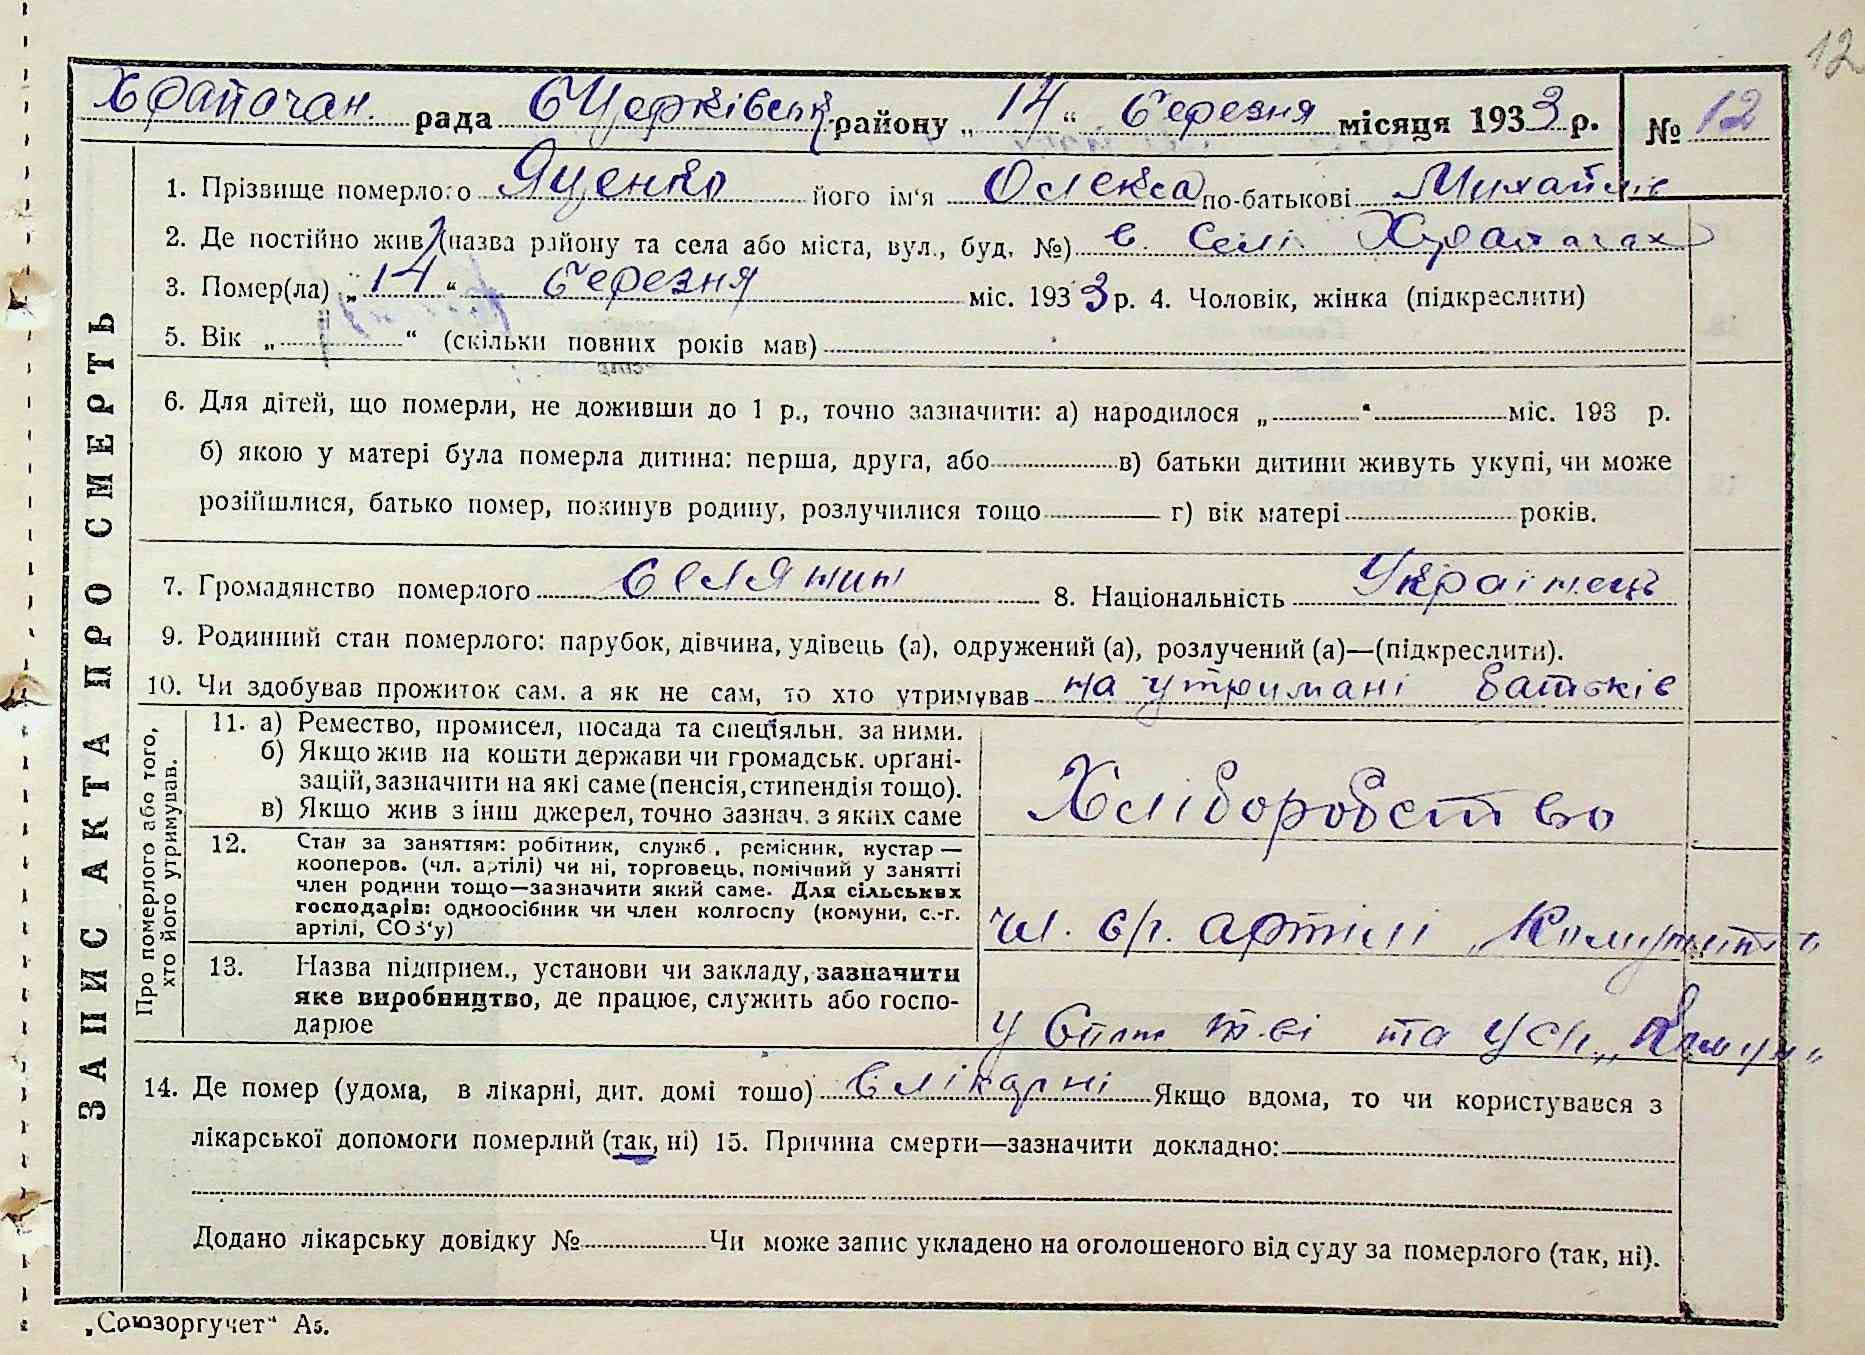 12
Храпачан. рада БЦерківськ району „14“ березня місяця 1933 р. № 12
ЗАПИС АКТА ПРО СМЕРТЬ
1. Прізвище померлого Яценко його ім'я Олекса по-батькові Михайлів
2. Де постійно жив (назва району та села або міста, вул., буд. №) в селі Храпачах
3. Помер(ла) „14“ березня міс. 1933 р. 4. Чоловік, жінка (підкреслити)
5. Вік „ “ (скільки повних років мав)
6. Для дітей, що померли, не доживши до 1 р., точно зазначити: а) народилося „ “ міс. 193 р.
б) якою у матері була померла дитина: перша, друга, або в) батьки дитини живуть укупі, чи може
розійшлися, батько помер, покинув родину, розлучилися тощо г) вік матері років.
7. Громадянство померлого селянин 8. Національність Українець
9. Родинний стан померлого: парубок, дівчина, удівець (а), одружений (а), розлучений (а)—(підкреслити).
10. Чи здобував прожиток сам, а як не сам, то хто утримував на утримані батьків
Про померлого або того,
хто його утримував.
11. а) Ремество, промисел, посада та спеціяльн. за ними.
б) Якщо жив на кошти держави чи громадськ. органі-
зацій, зазначити на які саме (пенсія, стипендія тощо).
в) Якщо жив з інш джерел, точно зазнач. з яких саме
Хліборобство
12. Стан за заняттям: робітник, служб., ремісник, кустар—
кооперов. (чл. артілі) чи ні, торговець, помічний у занятті
член родини тощо—зазначити який саме. Для сільських
господарів: одноосібник чи член колгоспу (комуни, с.-г.
артілі, СОЗ'у)
чл. с/г. артілі
13. Назва підприєм., установи чи закладу, зазначити
яке виробництво, де працює, служить або госпо-
дарює
14. Де помер (удома, в лікарні, дит. домі тощо) в лікарні Якщо вдома, то чи користувався з
лікарської допомоги померлий (так, ні) 15. Причина смерти—зазначити докладно:
Додано лікарську довідку № Чи може запис укладено на оголошеного від суду за померлого (так, ні).
„Союзоргучет“ А5.